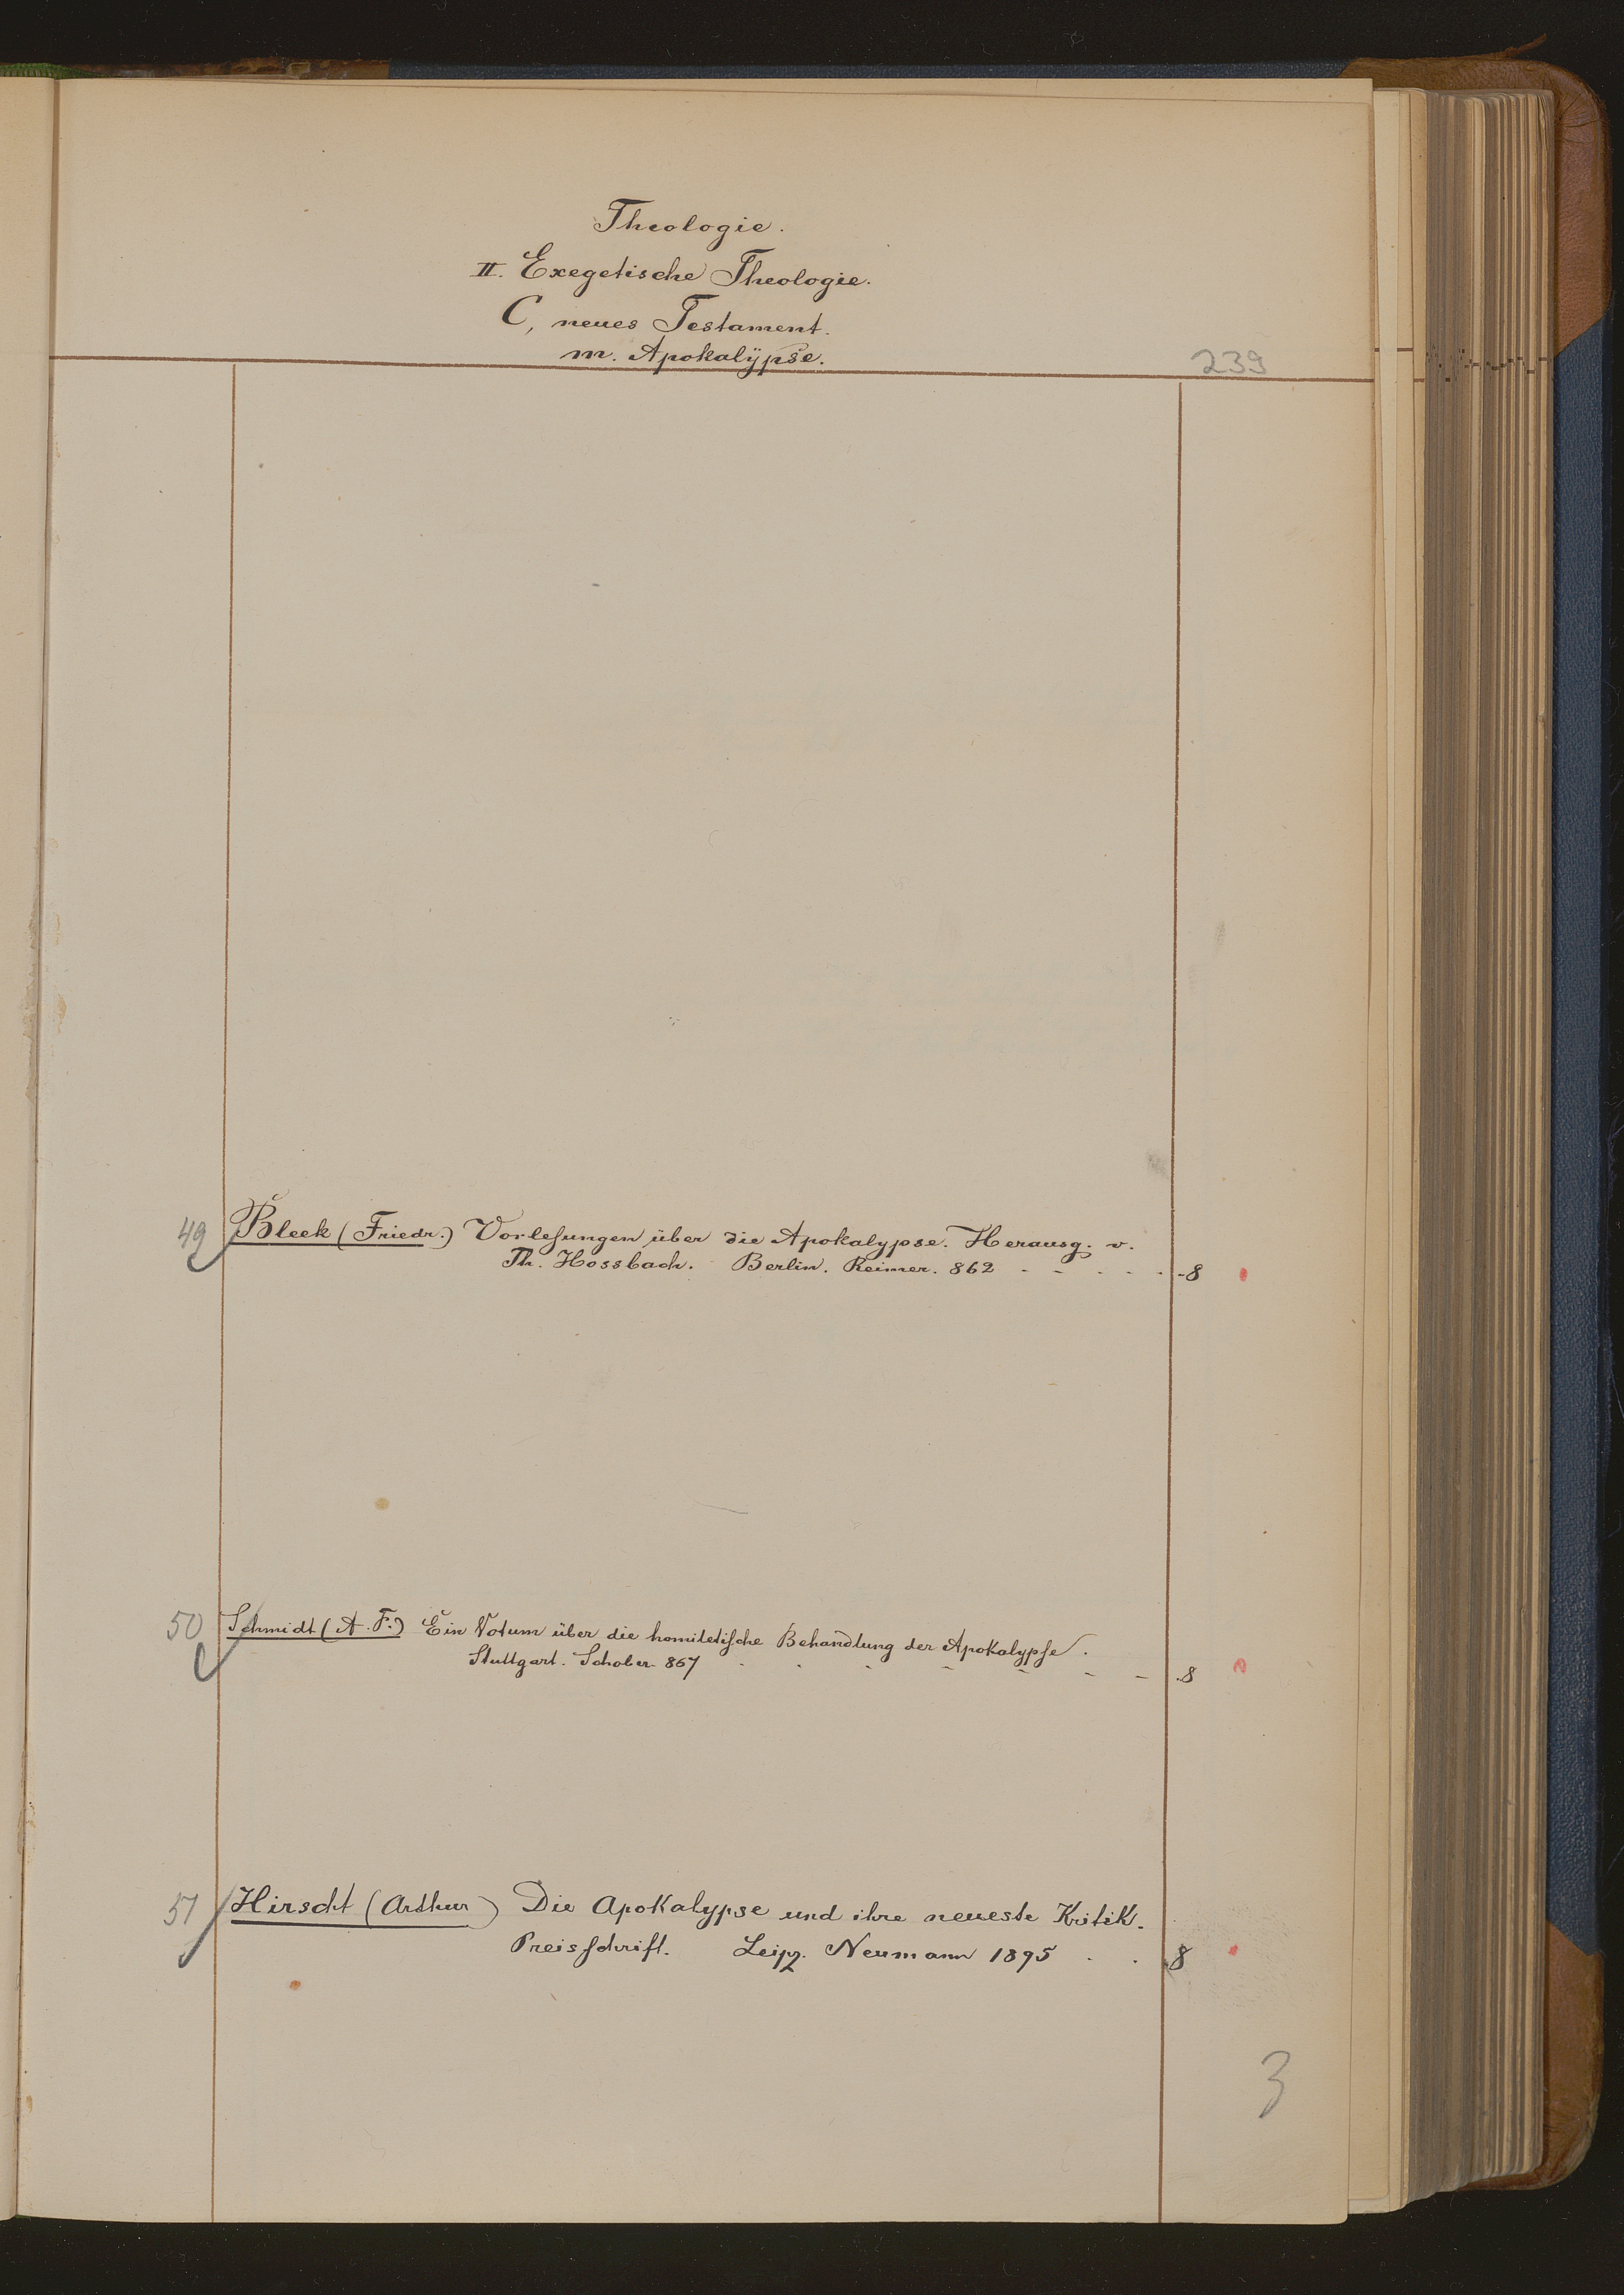 Theologie.
II. Exegetische Theologie.
C, neues Testament.
m. Apokalÿpse.
239
49 Bleek (Friedr.) Vorlesungen über die Apokalypse. Herausg. v.
Th. Hossbach. Berlin. Reimer. 862 - - - - - -8
50 Schmidt (A. F.) Ein Votum über die homiletische Behandlung der Apokalypse.
Stuttgart. Schober 867 - - - - - - - .8
51 Hirscht (Arthur) Die Apokalypse und ihre neueste Kritik.
Preisschrift. Leipz. Neumann 1895 . . 8
3